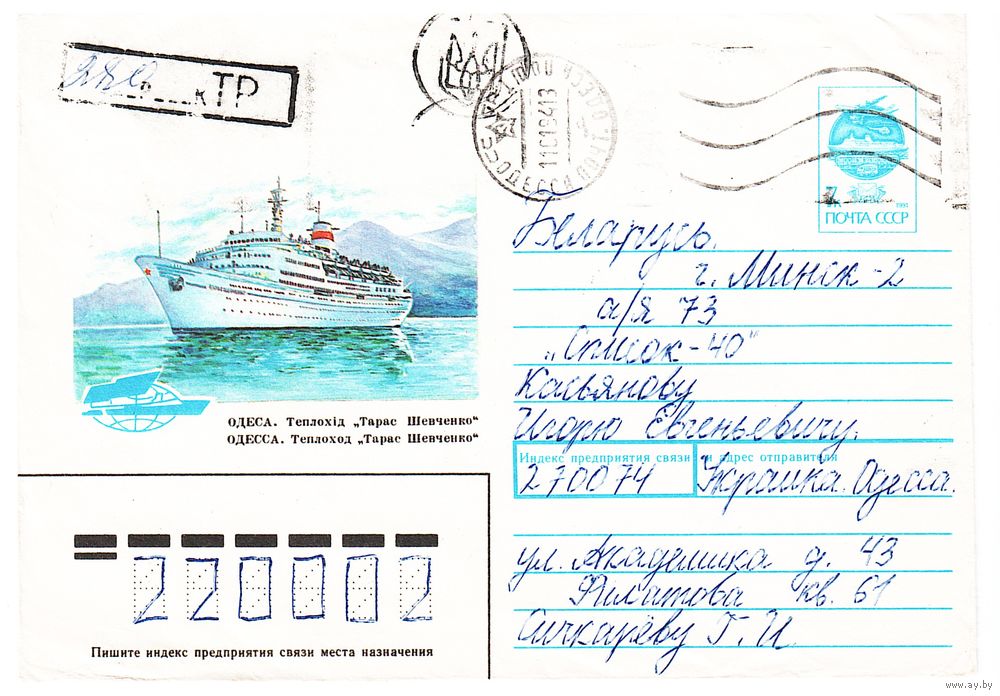 ТР
ПОЧТА СССР
1991
7
к
Беларусь.
г. Минск-2
а/я 73
„Список-40"
Касьянову
Игорю Евгеньевичу.
Индекс предприятия связи и адрес отправителя
270074 Украина. Одесса.
ул. Академика д. 43
Филатова кв. 61
Сичкарёву Г. И
ОДЕСА. Теплохід „Тарас Шевченко"
ОДЕССА. Теплоход „Тарас Шевченко"
220002
Пишите индекс предприятия связи места назначения
www.ay.by